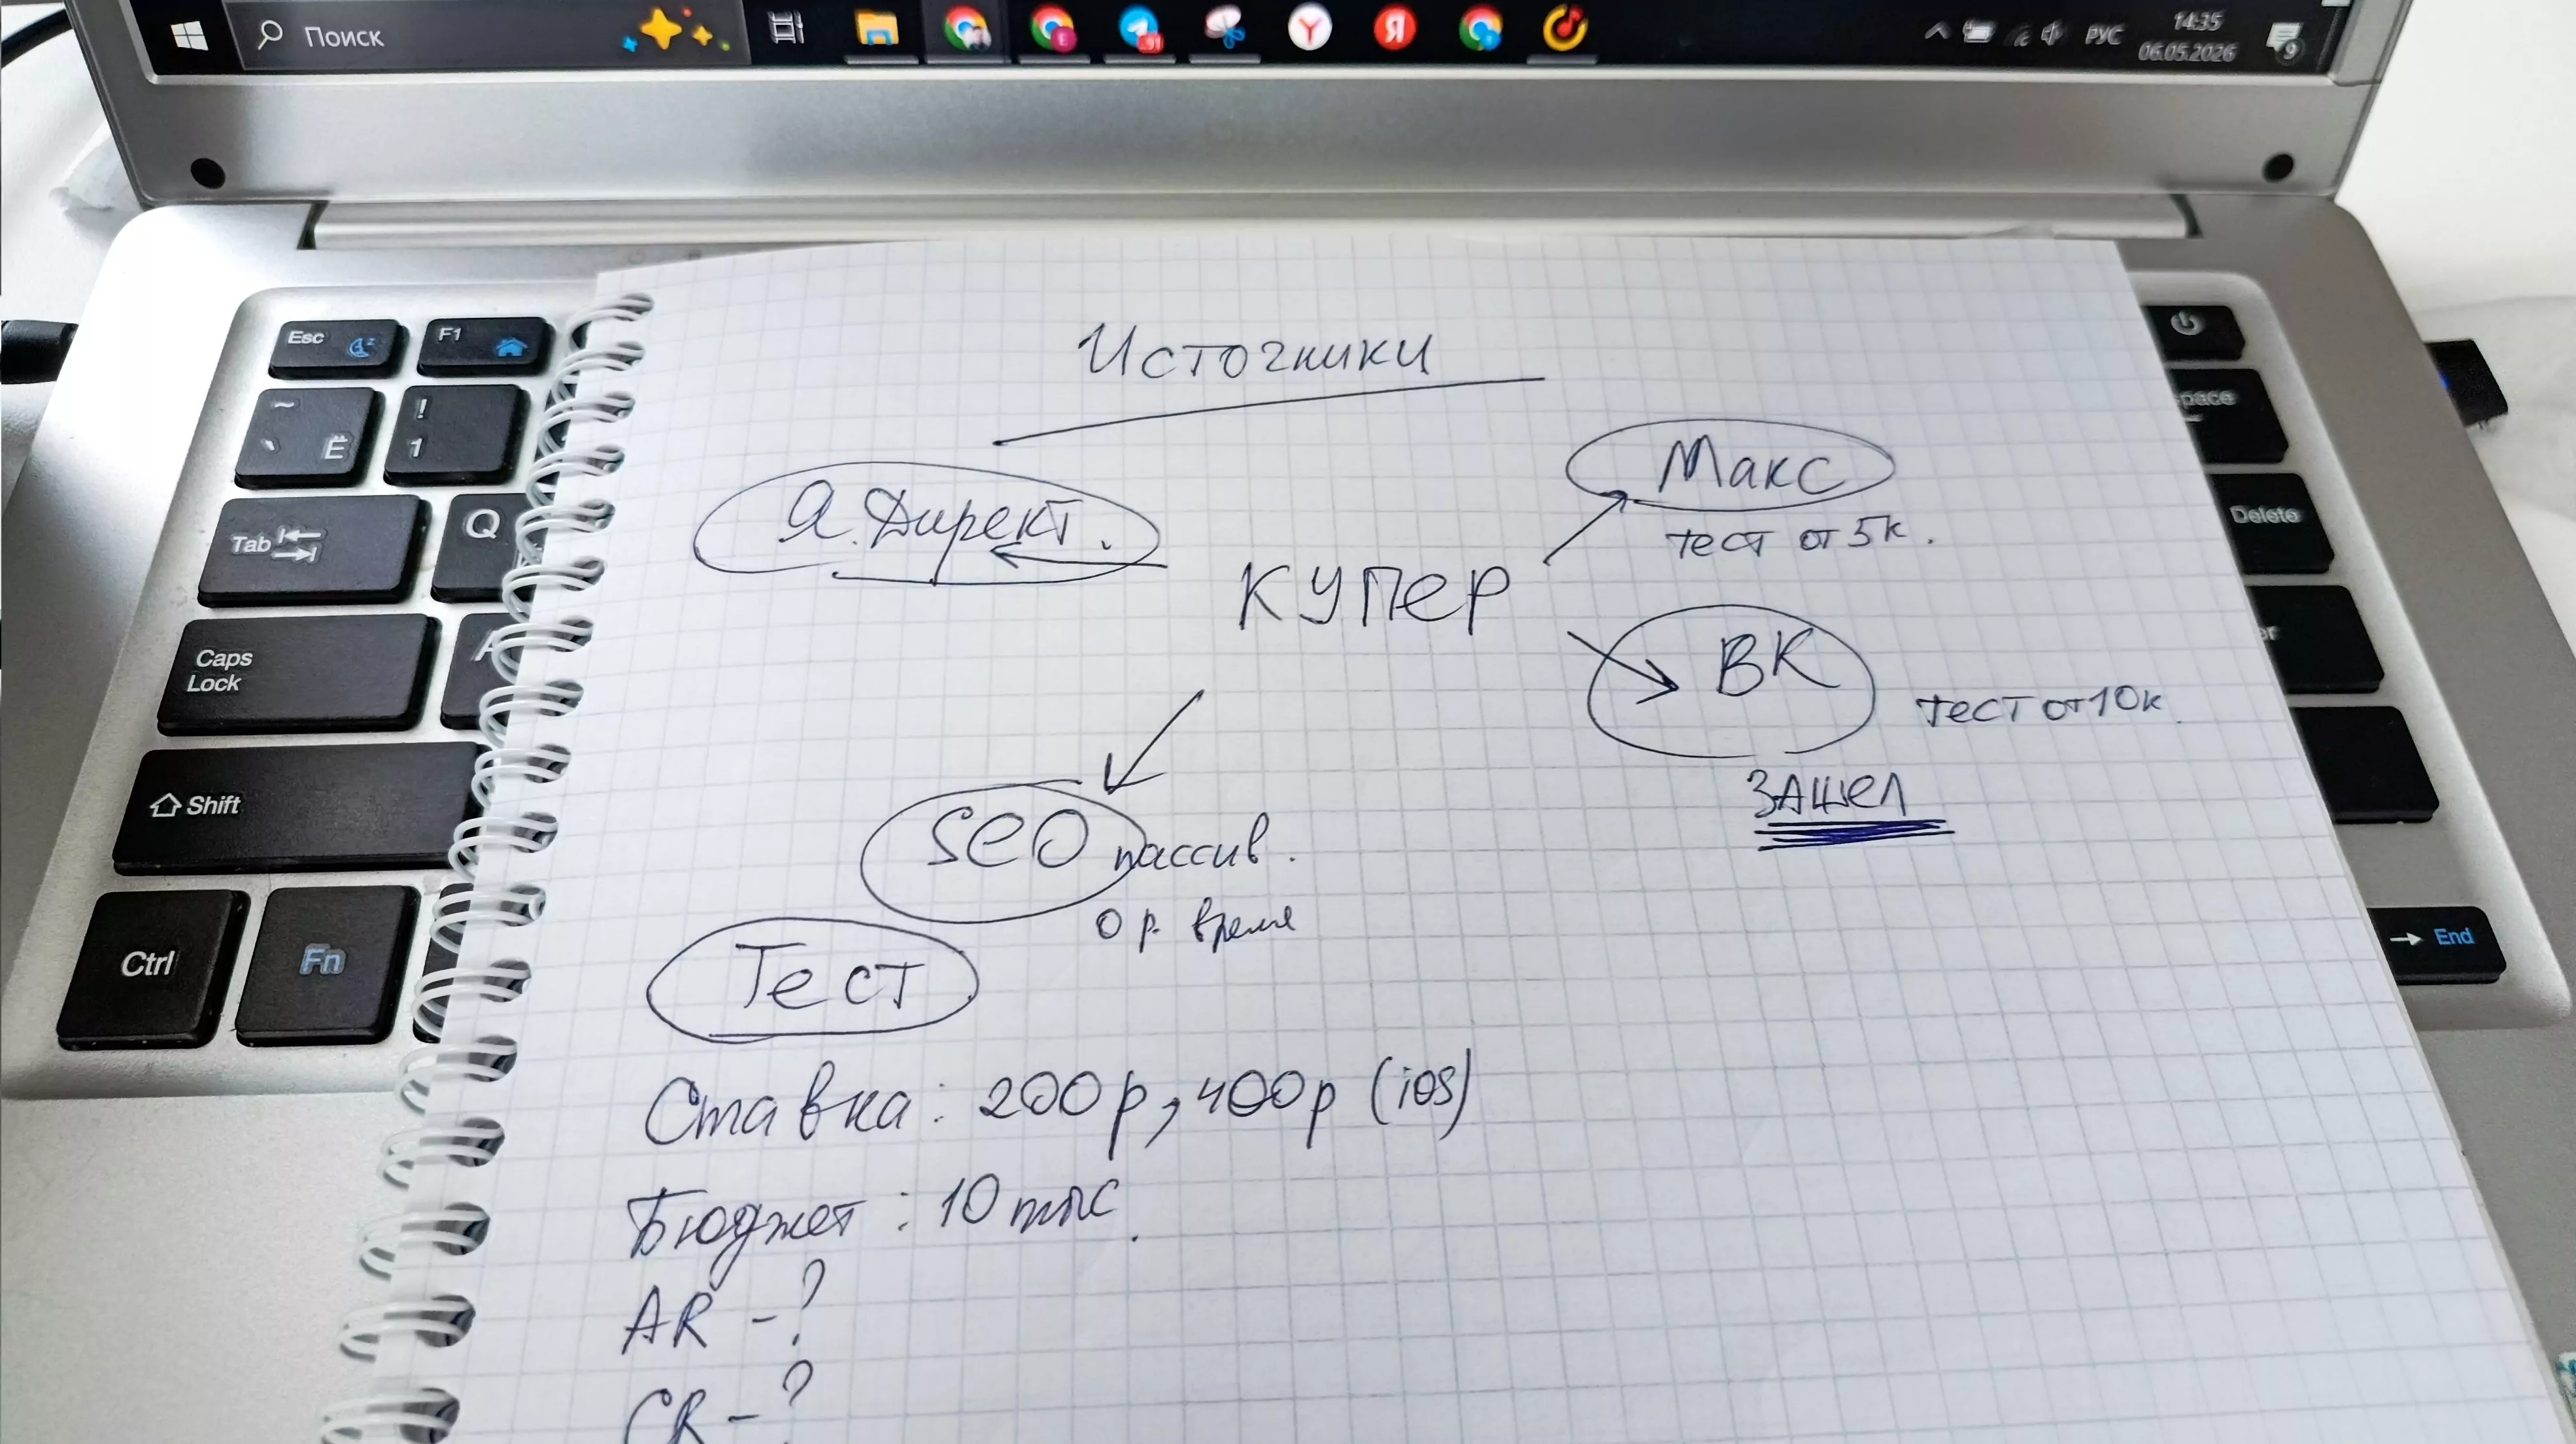 Поиск
РУС
14:35
06.05.2026
9
Esc
F1
~
Ё
!
1
Tab
Q
Caps
Lock
A
Shift
Ctrl
Fn
Delete
End
Источники
Я. Директ.
Макс
тест от 5к.
КУПЕР
ВК
тест от 10к.
ЗАШЕЛ
SEO пассив.
0 р. время
Тест
Ставка: 200р, 400р (ios)
Бюджет: 10 тыс.
AR - ?
CR - ?